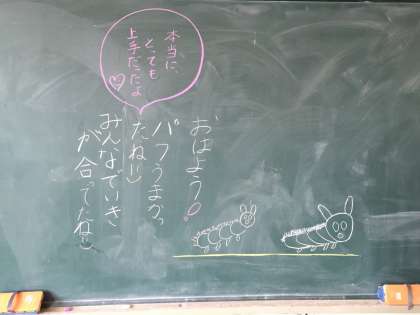 おはよう!
バフうまかっ
たね!!
みんなでいき
が合ってたね
本当に、
とっても
上手だったよ